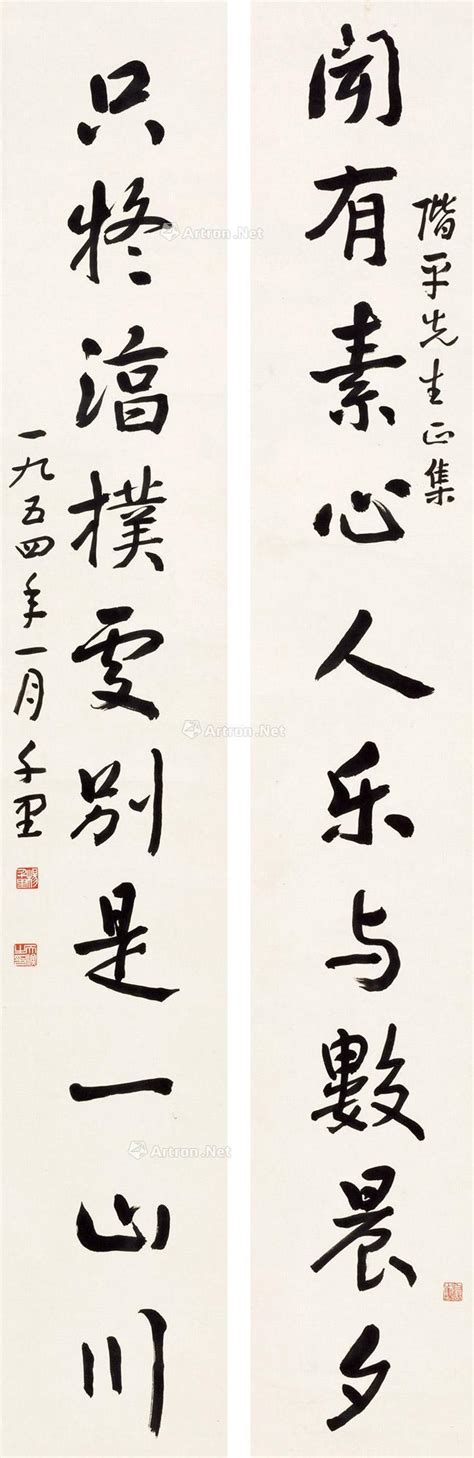 階平先生正集
聞有素心人乐与數晨夕
只将湻樸處别是一山川
一九五四年一月 千里
Artron.Net
Artron.Net
Artron.Net
Artron.Net